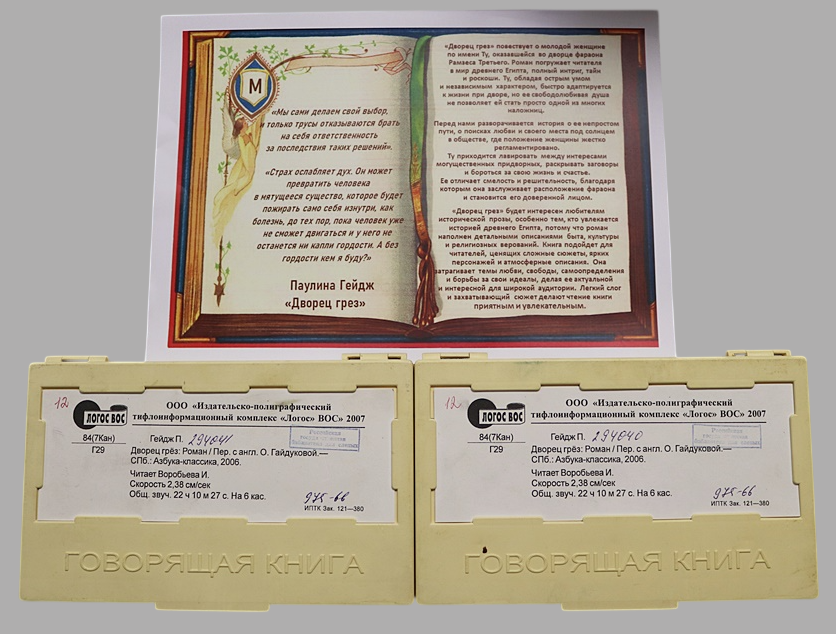 М
«Мы сами делаем свой выбор,
и только трусы отказываются брать
на себя ответственность
за последствия таких решений».
«Страх ослабляет дух. Он может
превратить человека
в мятущееся существо, которое будет
пожирать само себя изнутри, как
болезнь, до тех пор, пока человек уже
не сможет двигаться и у него не
останется ни капли гордости. А без
гордости кем я буду?»
Паулина Гейдж
«Дворец грез»
«Дворец грез» повествует о молодой женщине
по имени Ту, оказавшейся во дворце фараона
Рамзеса Третьего. Роман погружает читателя
в мир древнего Египта, полный интриг, тайн
и роскоши. Ту, обладая острым умом
и независимым характером, быстро адаптируется
к жизни при дворе, но ее свободолюбивая душа
не позволяет ей стать просто одной из многих
наложниц.
Перед нами разворачивается история о ее непростом
пути, о поисках любви и своего места под солнцем
в обществе, где положение женщины жестко
регламентировано.
Ту приходится лавировать между интересами
могущественных придворных, раскрывать заговоры
и бороться за свою жизнь и счастье.
Ее отличает смелость и решительность, благодаря
которым она заслуживает расположение фараона
и становится его доверенной лицом.
«Дворец грез» будет интересен любителям
исторической прозы, особенно тем, кто увлекается
историей древнего Египта, потому что роман
наполнен детальными описаниями быта, культуры
и религиозных верований. Книга подойдет для
читателей, ценящих сложные сюжеты, ярких
персонажей и атмосферные описания. Она
затрагивает темы любви, свободы, самоопределения
и борьбы за свои идеалы, делая ее актуальной
и интересной для широкой аудитории. Легкий слог
и захватывающий сюжет делают чтение книги
приятным и увлекательным.
12
ЛОГОС ВОС
ООО «Издательско-полиграфический
тифлоинформационный комплекс «Логос» ВОС» 2007
84(7Кан)
Г29
Гейдж П. 294041
Российская
государственная
библиотека для слепых
Дворец грёз: Роман / Пер. с англ. О. Гайдуковой.—
СПб.: Азбука-классика, 2006.
Читает Воробьева И.
Скорость 2,38 см/сек
Общ. звуч. 22 ч 10 м 27 с. На 6 кас.
975-66
ИПТК Зак. 121—380
ГОВОРЯЩАЯ КНИГА
12
ЛОГОС ВОС
ООО «Издательско-полиграфический
тифлоинформационный комплекс «Логос» ВОС» 2007
84(7Кан)
Г29
Гейдж П. 294040
Российская
государственная
библиотека для слепых
Дворец грёз: Роман / Пер. с англ. О. Гайдуковой.—
СПб.: Азбука-классика, 2006.
Читает Воробьева И.
Скорость 2,38 см/сек
Общ. звуч. 22 ч 10 м 27 с. На 6 кас.
975-66
ИПТК Зак. 121—380
ГОВОРЯЩАЯ КНИГА